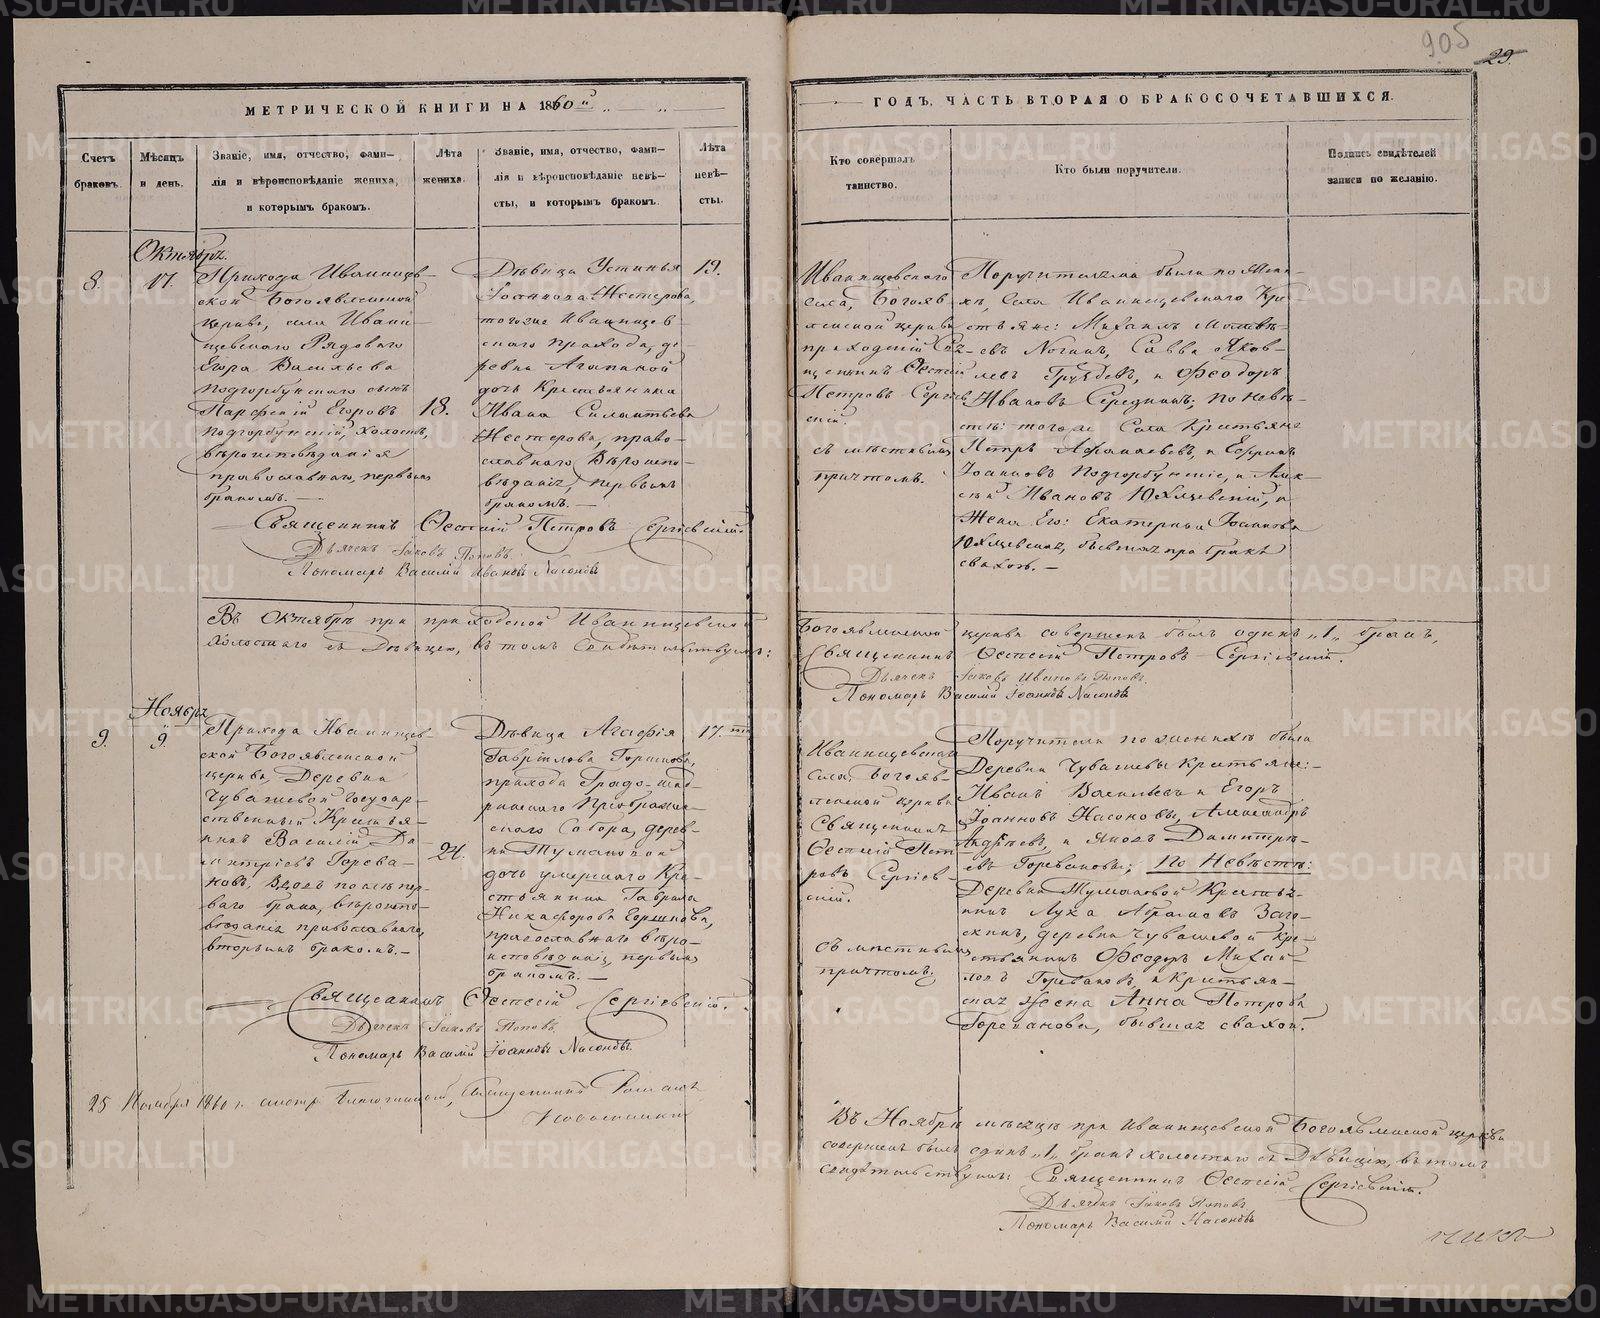 905
29.
МЕТРИЧЕСКОЙ КНИГИ НА 1860й
ГОДЪ, ЧАСТЬ ВТОРАЯ О БРАКОСОЧЕТАВШИХСЯ.
Счетъ браковъ.
Мѣсяцъ и день.
Званіе, имя, отчество, фами-
лія и вѣроисповѣданіе жениха,
и которымъ бракомъ.
Лѣта жениха.
Званіе, имя, отчество, фами-
лія и вѣроисповѣданіе невѣ-
сты, и которымъ бракомъ.
Лѣта невѣ-
сты.
Кто совершалъ
таинство.
Кто были поручители.
Подпись свидѣтелей
записи по желанію.
Октябрь.
8.
17.
Прихода Иванищев-
ской Богоявленской
церкви, села Ивани-
щевскаго Рядоваго
Егора Васильева
Подгорбунскаго сынъ
Парфеній Егоровъ
Подгорбунскій, холостъ,
вѣроисповѣданія
православнаго, первымъ
бракомъ. —
18.
Дѣвица Устинья
Іоаннова Нестерова,
тогоже Иванищев-
скаго прихода, де-
ревни
дочь Крестьянина
Ивана Силантьева
Нестерова, право-
славнаго Вѣроиспо-
вѣданія, первымъ
бракомъ. —
19.
Иванищевскаго
села, Богояв-
ленской церкви
приходскій Свя-
щенникъ
Петровъ Сергіев-
скій.
съ мѣстнымъ
причтомъ.
Поручителями были по жени-
хѣ, Села Иванищевскаго Кре-
стьяне: Михаилъ
Савва Яков-
левъ и Феодоръ
Ивановъ Серединъ; по невѣ-
стѣ: тогоже Села Крестьяне
Петръ и
Іоанновъ Подгорбунскіе, и Алек-
сѣй Ивановъ и
Жена Его: Екатерина Іоаннова
бывшая при бракѣ
свахою. —
Священникъ Петровъ Сергіевскій.
Дьячекъ Іаковъ Поповъ.
Пономарь Василій Ивановъ Насоновъ
Въ Октябрѣ при приходской Иванищевской
Богоявленской церкви совершенъ былъ одинъ „1„ бракъ,
холостаго съ Дѣвицею, въ томъ Свидѣтельствуемъ:
Священникъ Петровъ Сергіевскій.
Дьячекъ Іаковъ Ивановъ Поповъ.
Пономарь Василій Іоанновъ Насоновъ
Ноябрь
9.
9.
Прихода Иванищев-
ской Богоявленской
церкви, Деревни
Чувашевой Государ-
ственный Крестья-
нинъ Василій Ди-
митріевъ Горева-
новъ, Вдовъ послѣ пер-
ваго брака, вѣроиспо-
вѣданія православнаго,
вторымъ бракомъ. —
24.
Дѣвица Агафія
Гавріилова Горшкова,
прихода Градо-Шад-
ринскаго Преображен-
скаго Собора, дерев-
ни Тумановой
дочь умершаго Кре-
стьянина Гавріила
Никифорова Горшкова,
православнаго вѣро-
исповѣданія, первымъ
бракомъ. —
17.ти
Иванищевскаго
Села, Богояв-
ленской церкви
Священникъ
Пет-
ровъ Сергіев-
скій.
съ мѣстнымъ
причтомъ.
Поручители по женихѣ были
Деревни Чувашевы Крестьяне:
Иванъ Васильевъ и Егоръ
Іоанновъ Насоновы, Александръ
Андреевъ, и Яковъ Димитрі-
евъ Горевановы; По Невѣстѣ:
Деревни Тумановой Крестья-
нинъ Лука Абрамовъ Заго-
скинъ, деревни Чувашевой Кре-
стьянинъ Феодоръ Михай-
ловъ Горевановъ, и Крестьян-
ская жена Анна Петрова
Гореванова, бывшая свахой.
Священникъ Сергіевскій.
Дьячекъ Іаковъ Поповъ.
Пономарь Василій Іоанновъ Насоновъ.
25 Ноября 1860 г. смотр. Благочинный, Священникъ
Въ Ноябрѣ мѣсяцѣ при Иванищевской Богоявленской церкви
совершенъ былъ одинъ „1„ бракъ холостаго съ Дѣвицею, въ томъ
свидѣтельствуемъ: Священникъ Сергіевскій.
Дьячекъ Іаковъ Поповъ
Пономарь Василій Насоновъ
METRIKI.GASO-URAL.RU